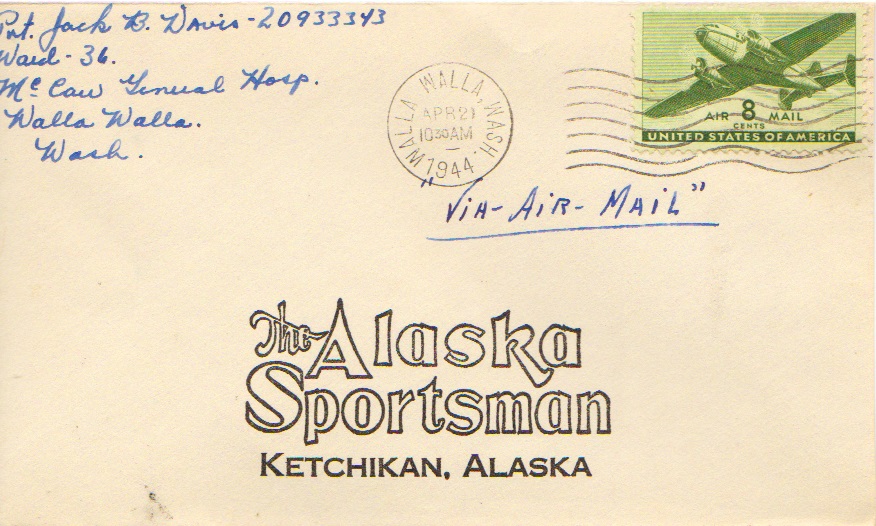 Pvt. Jack B. Davis-20933343
Ward-36.
McCaw General Hosp.
Walla Walla.
Wash.
WALLA WALLA, WASH.
APR 21
10 30 AM
1944
AIR 8 MAIL
CENTS
UNITED STATES OF AMERICA
"VIA-AIR-MAIL"
The Alaska
Sportsman
KETCHIKAN, ALASKA